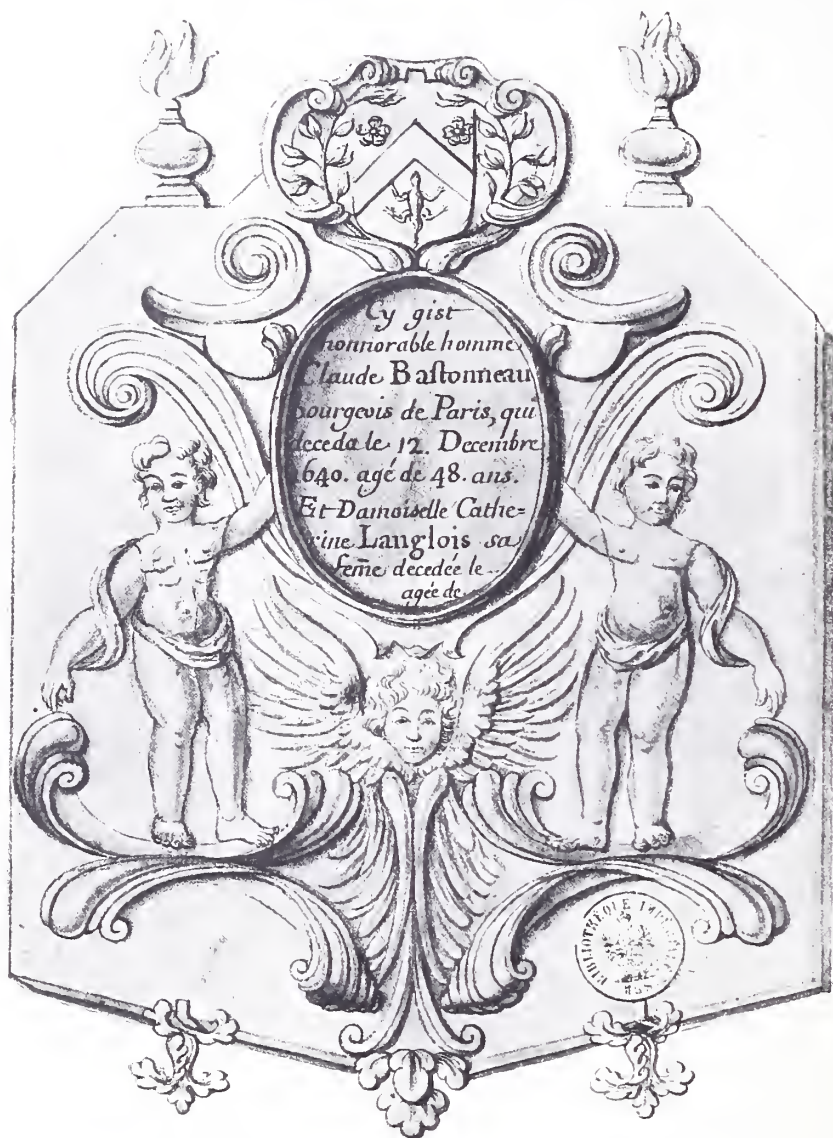 Cy gist
honnorable homme
Claude Bastonneau
bourgeois de Paris, qui
deceda le 12. Decembre
1640. agé de 48. ans.
Et Damoiselle Cathe=
rine Langlois sa
feme decedée le
agée de
BIBLIOTHÉQUE